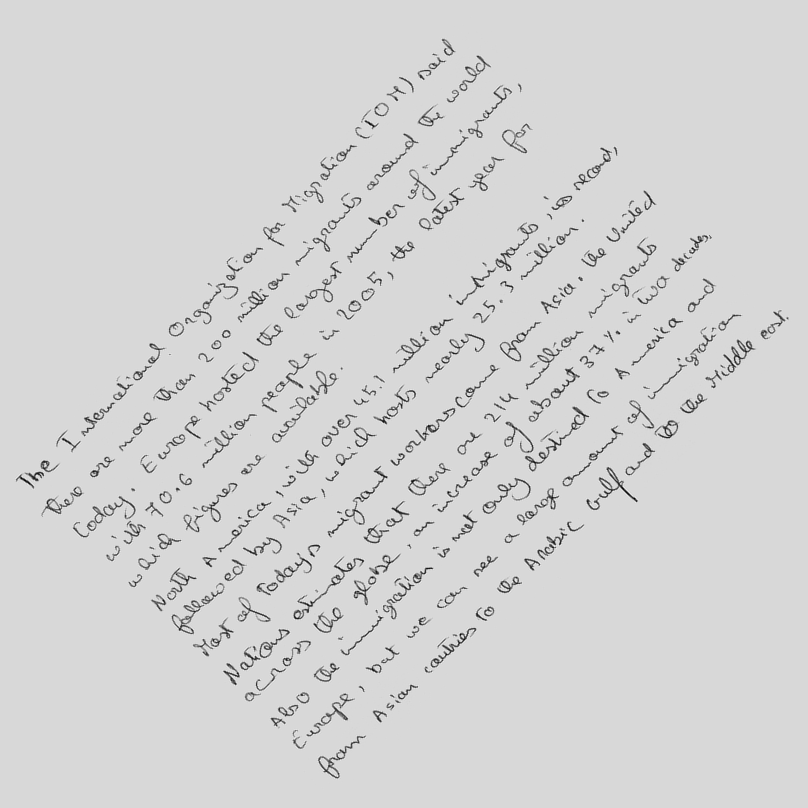 The International Organization for Migration (IOM) said
there are more than 200 million migrants around the world
today. Europe hosted the largest number of immigrants,
with 70.6 million people in 2005, the latest year for
which figures are available.
North America, with over 45.1 million immigrants, is record,
followed by Asia, which hosts nearly 25.3 million.
Most of todays migrant workers come from Asia. the United
Nations estimates that there are 214 million migrants
across the globe, an increase of about 37% in two decades.
Also the immigration is not only destined to America and
Europe, but we can see a large amount of immigration
from Asian coutries to the Arabic Gulf and to the Middle east.